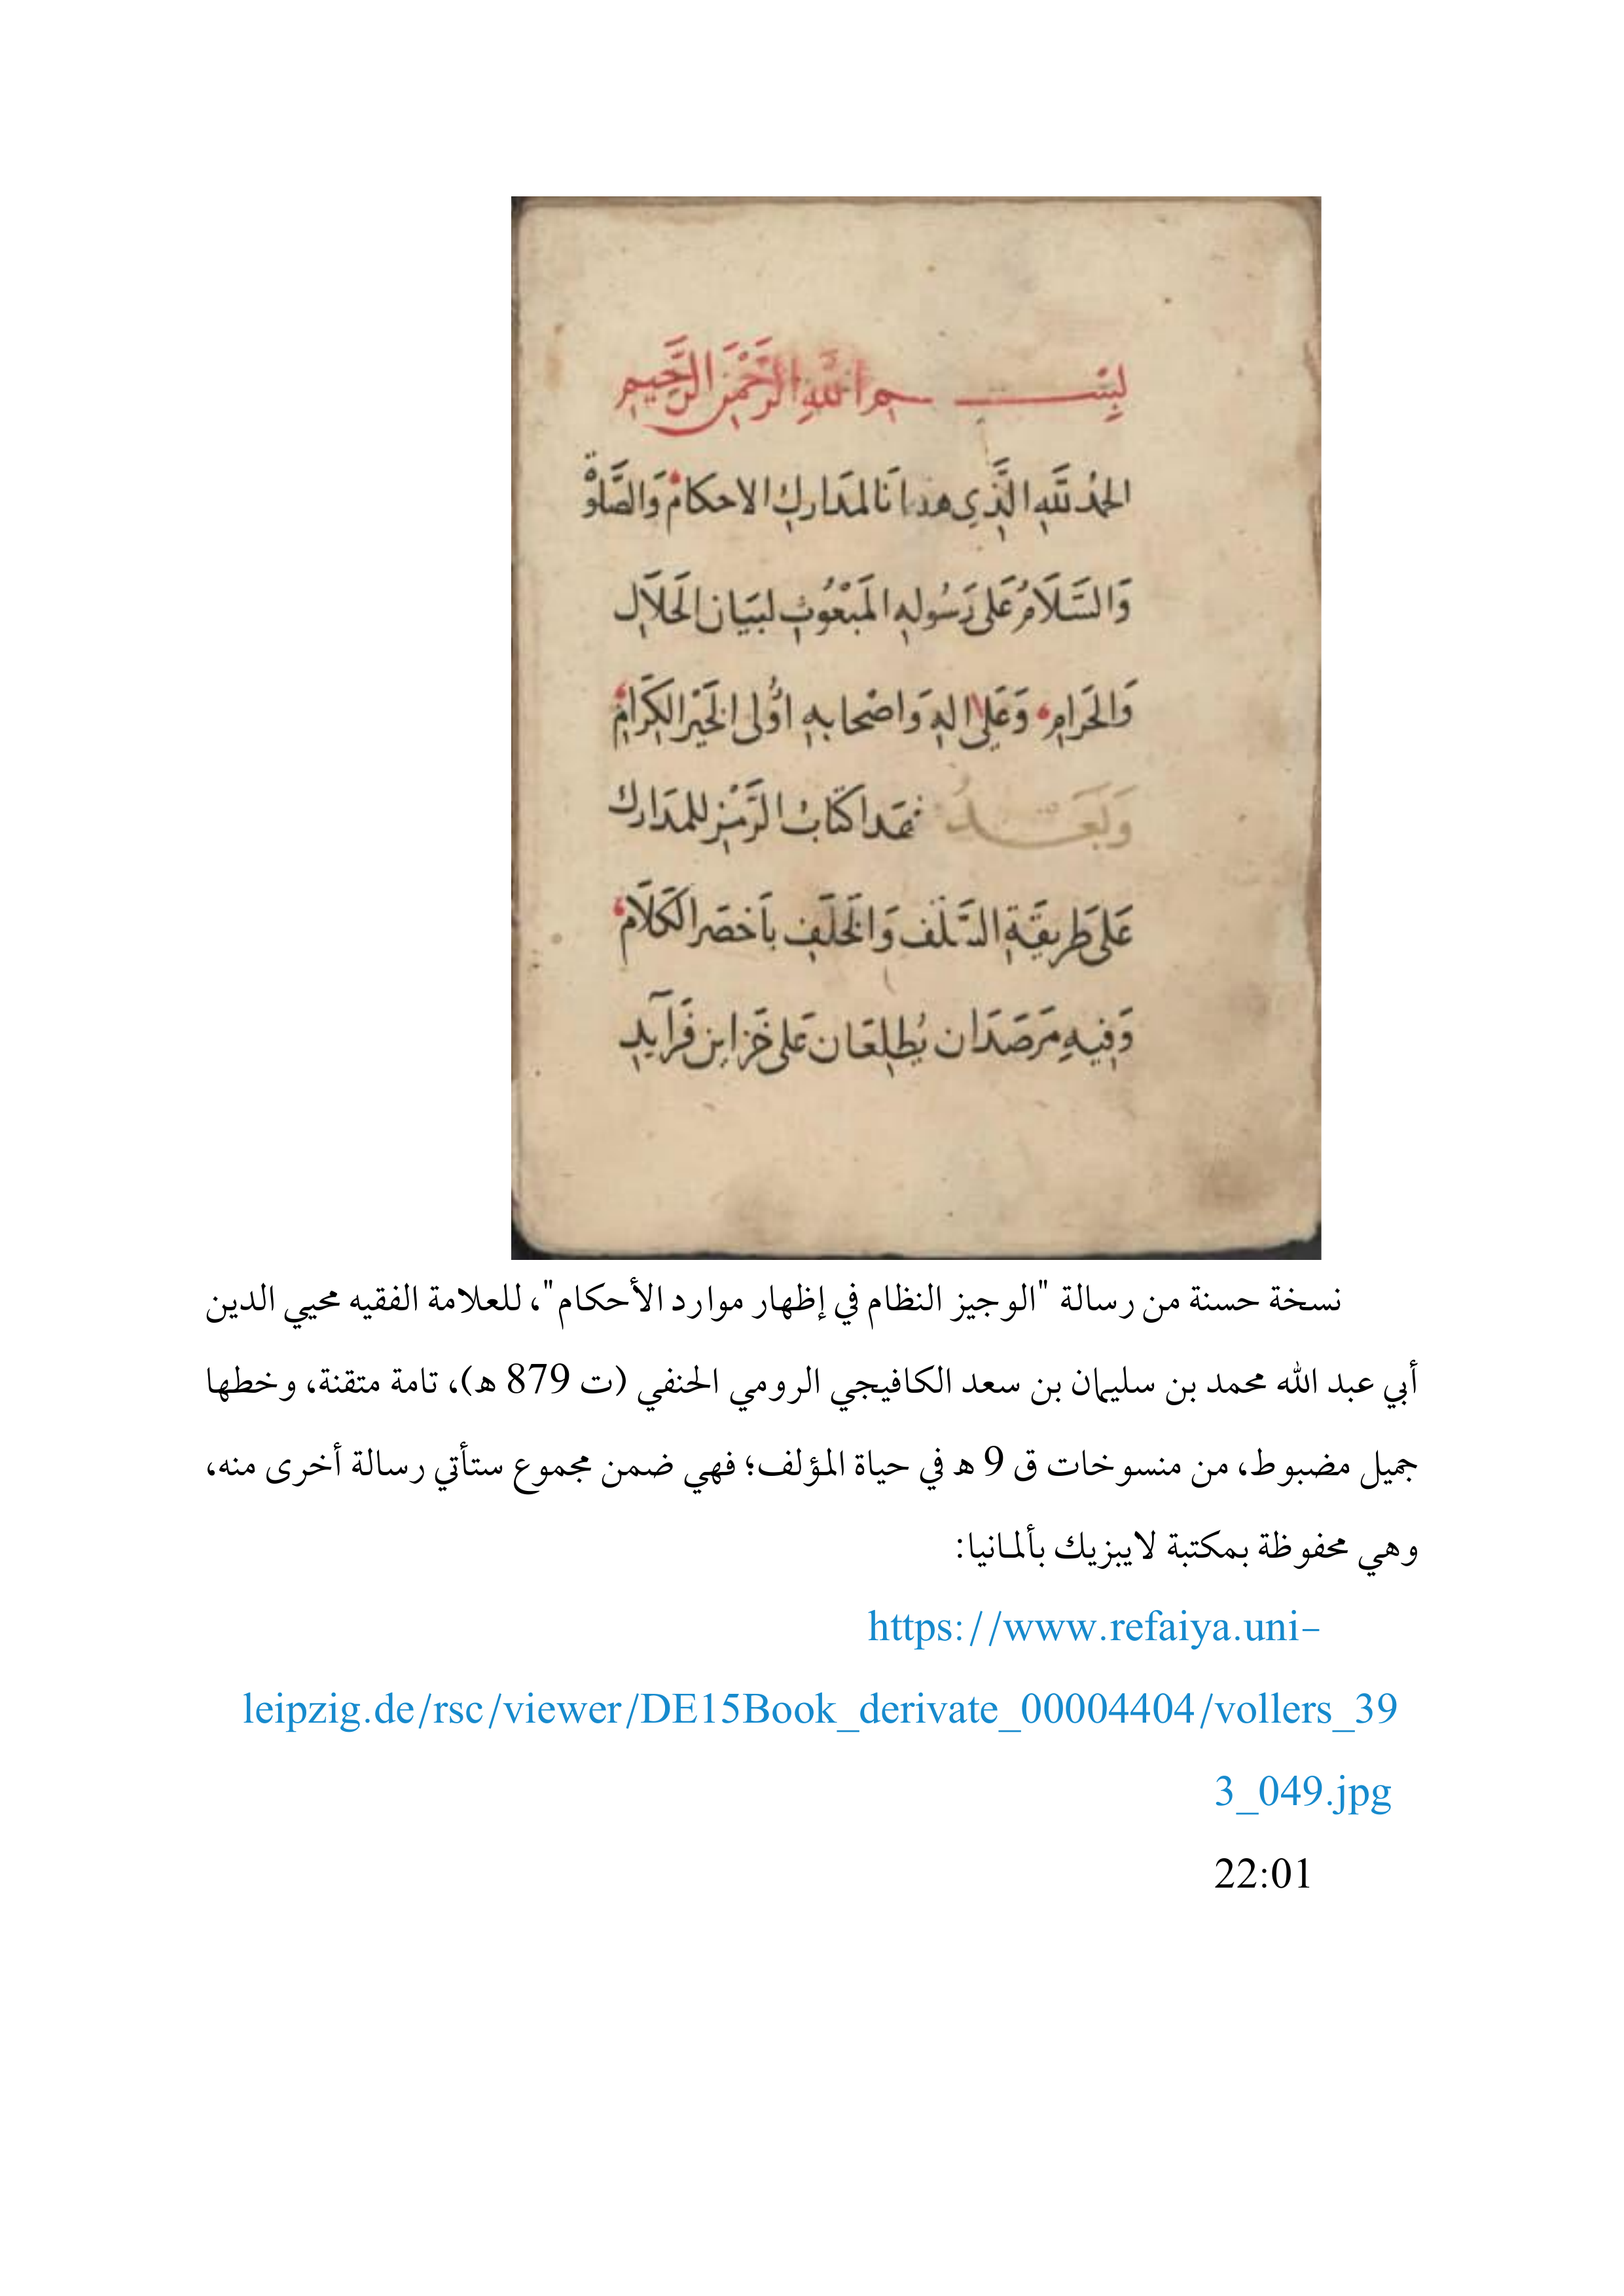 بِسْـــــــمِ اللَّهِ الرَّحْمَنِ الرَّحِيمِ
الحمْدُ للَّهِ الَّذِي هدانَا لمدَاركِ الاحكامِ وَالصَّلوٰةُ
وَالسَّلَامُ عَلى رَسُولِهِ المَبْعُوثِ لبيَان الحَلَالِ
وَالحَرامِ وَعَلى الهِ وَاصْحابهِ اُولى الخَيْر الكِرَامِ
وَبَعْـــدُ فهَذا كتَابُ الرَّمْزِ للمدَارك
عَلى طَريقَةِ السَّلَف وَالخَلَفِ بأَخصَر الكَلَامِ
وَفِيهِ مَرصَدَان يُطلِعَان عَلى خَزاينِ فَرَآيدِ
نسخة حسنة من رسالة "الوجيز النظام في إظهار موارد الأحكام"، للعلامة الفقيه محيي الدين
أبي عبد الله محمد بن سليمان بن سعد الكافيجي الرومي الحنفي (ت 879 هـ)، تامة متقنة، وخطها
جميل مضبوط، من منسوخات ق 9 هـ في حياة المؤلف؛ فهي ضمن مجموع ستأتي رسالة أخرى منه،
وهي محفوظة بمكتبة لايبزيك بألمانيا:
https://www.refaiya.uni-
leipzig.de/rsc/viewer/DE15Book_derivate_00004404/vollers_39
3_049.jpg
22:01